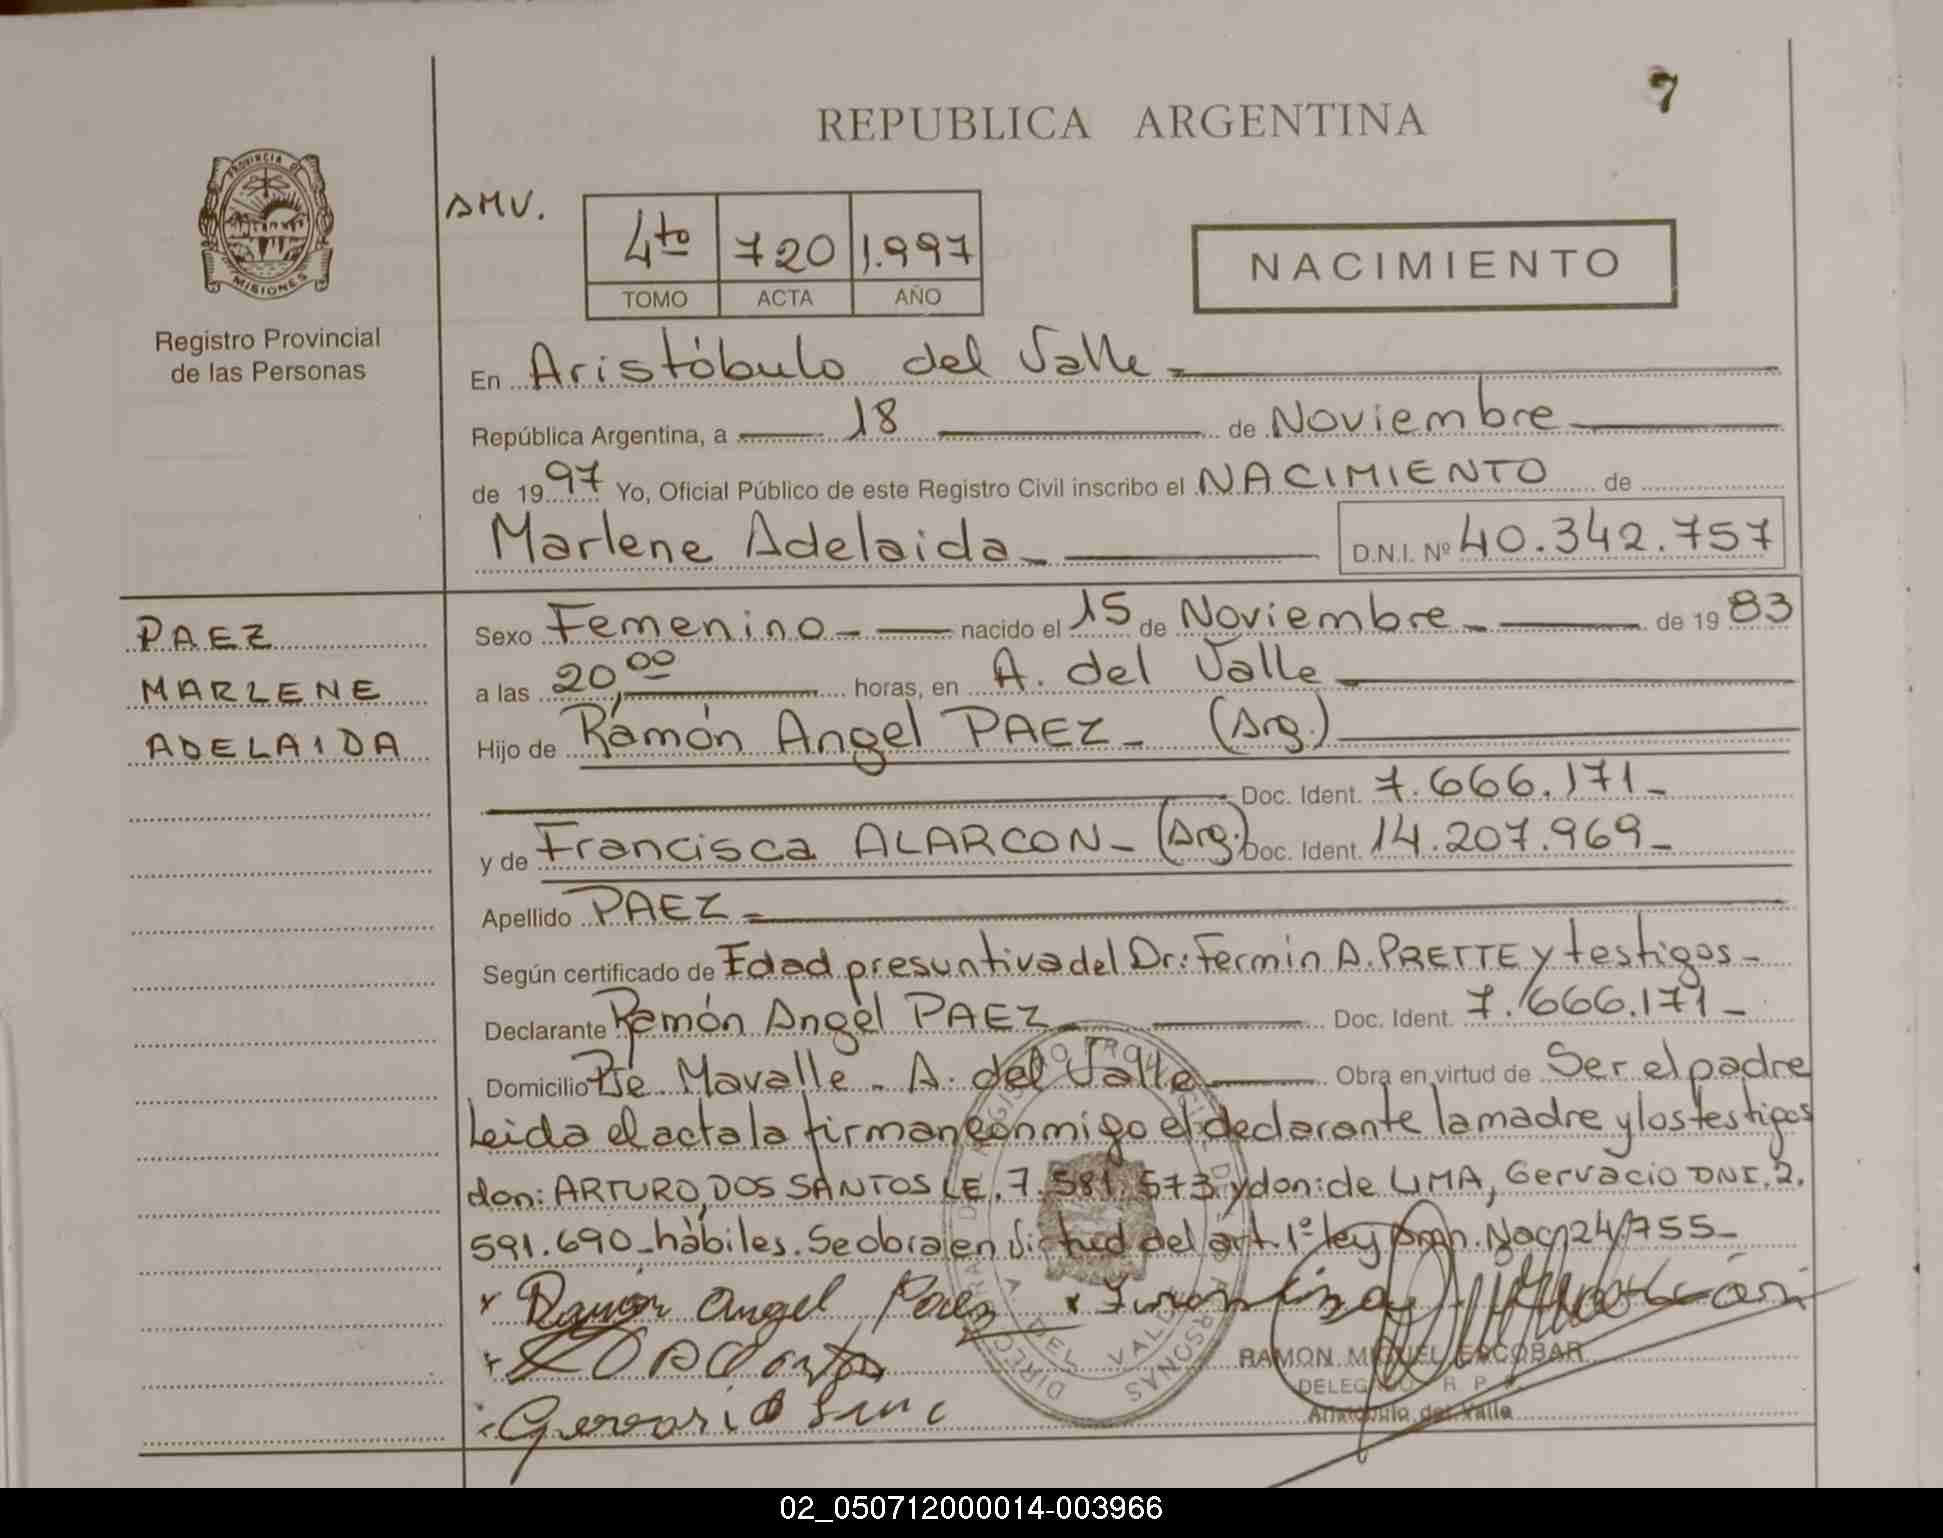 7
REPUBLICA ARGENTINA
PROVINCIA DE
MISIONES
Registro Provincial
de las Personas
AMV.
4to 720 1.997
TOMO ACTA AÑO
NACIMIENTO
En Aristóbulo del Valle
República Argentina, a 18 de Noviembre
de 1997 Yo, Oficial Público de este Registro Civil inscribo el NACIMIENTO de
Marlene Adelaida D.N.I. Nº 40.342.757
PAEZ
MARLENE
ADELAIDA
Sexo Femenino nacido el 15 de Noviembre de 1983
a las 20,00 horas, en A. del Valle
Hijo de Rámón Angel PAEZ (Arg.)
Doc. Ident. 7.666.171
y de Francisca ALARCON (Arg.) Doc. Ident. 14.207.969
Apellido PAEZ
Según certificado de Edad presuntiva del Dr: Fermin A. PRETTE y testigos
Declarante Ramón Angel PAEZ Doc. Ident. 7.666.171
Domicilio Pje Mavalle - A. del Valle Obra en virtud de Ser el padre
Leida el acta la firman conmigo el declarante la madre y los testigos
don: ARTURO, DOS SANTOS LE. 7.581.573 y don: de LIMA, Gervacio DNI. 2.
591.690 hàbiles. Se obra en Virtud del art. 1º ley Nac 24755
x Ramón Angel Paez x
RAMON MIGUEL ESCOBAR
DELEGADO R. P.
Aristóbulo del Valle
02_050712000014-003966